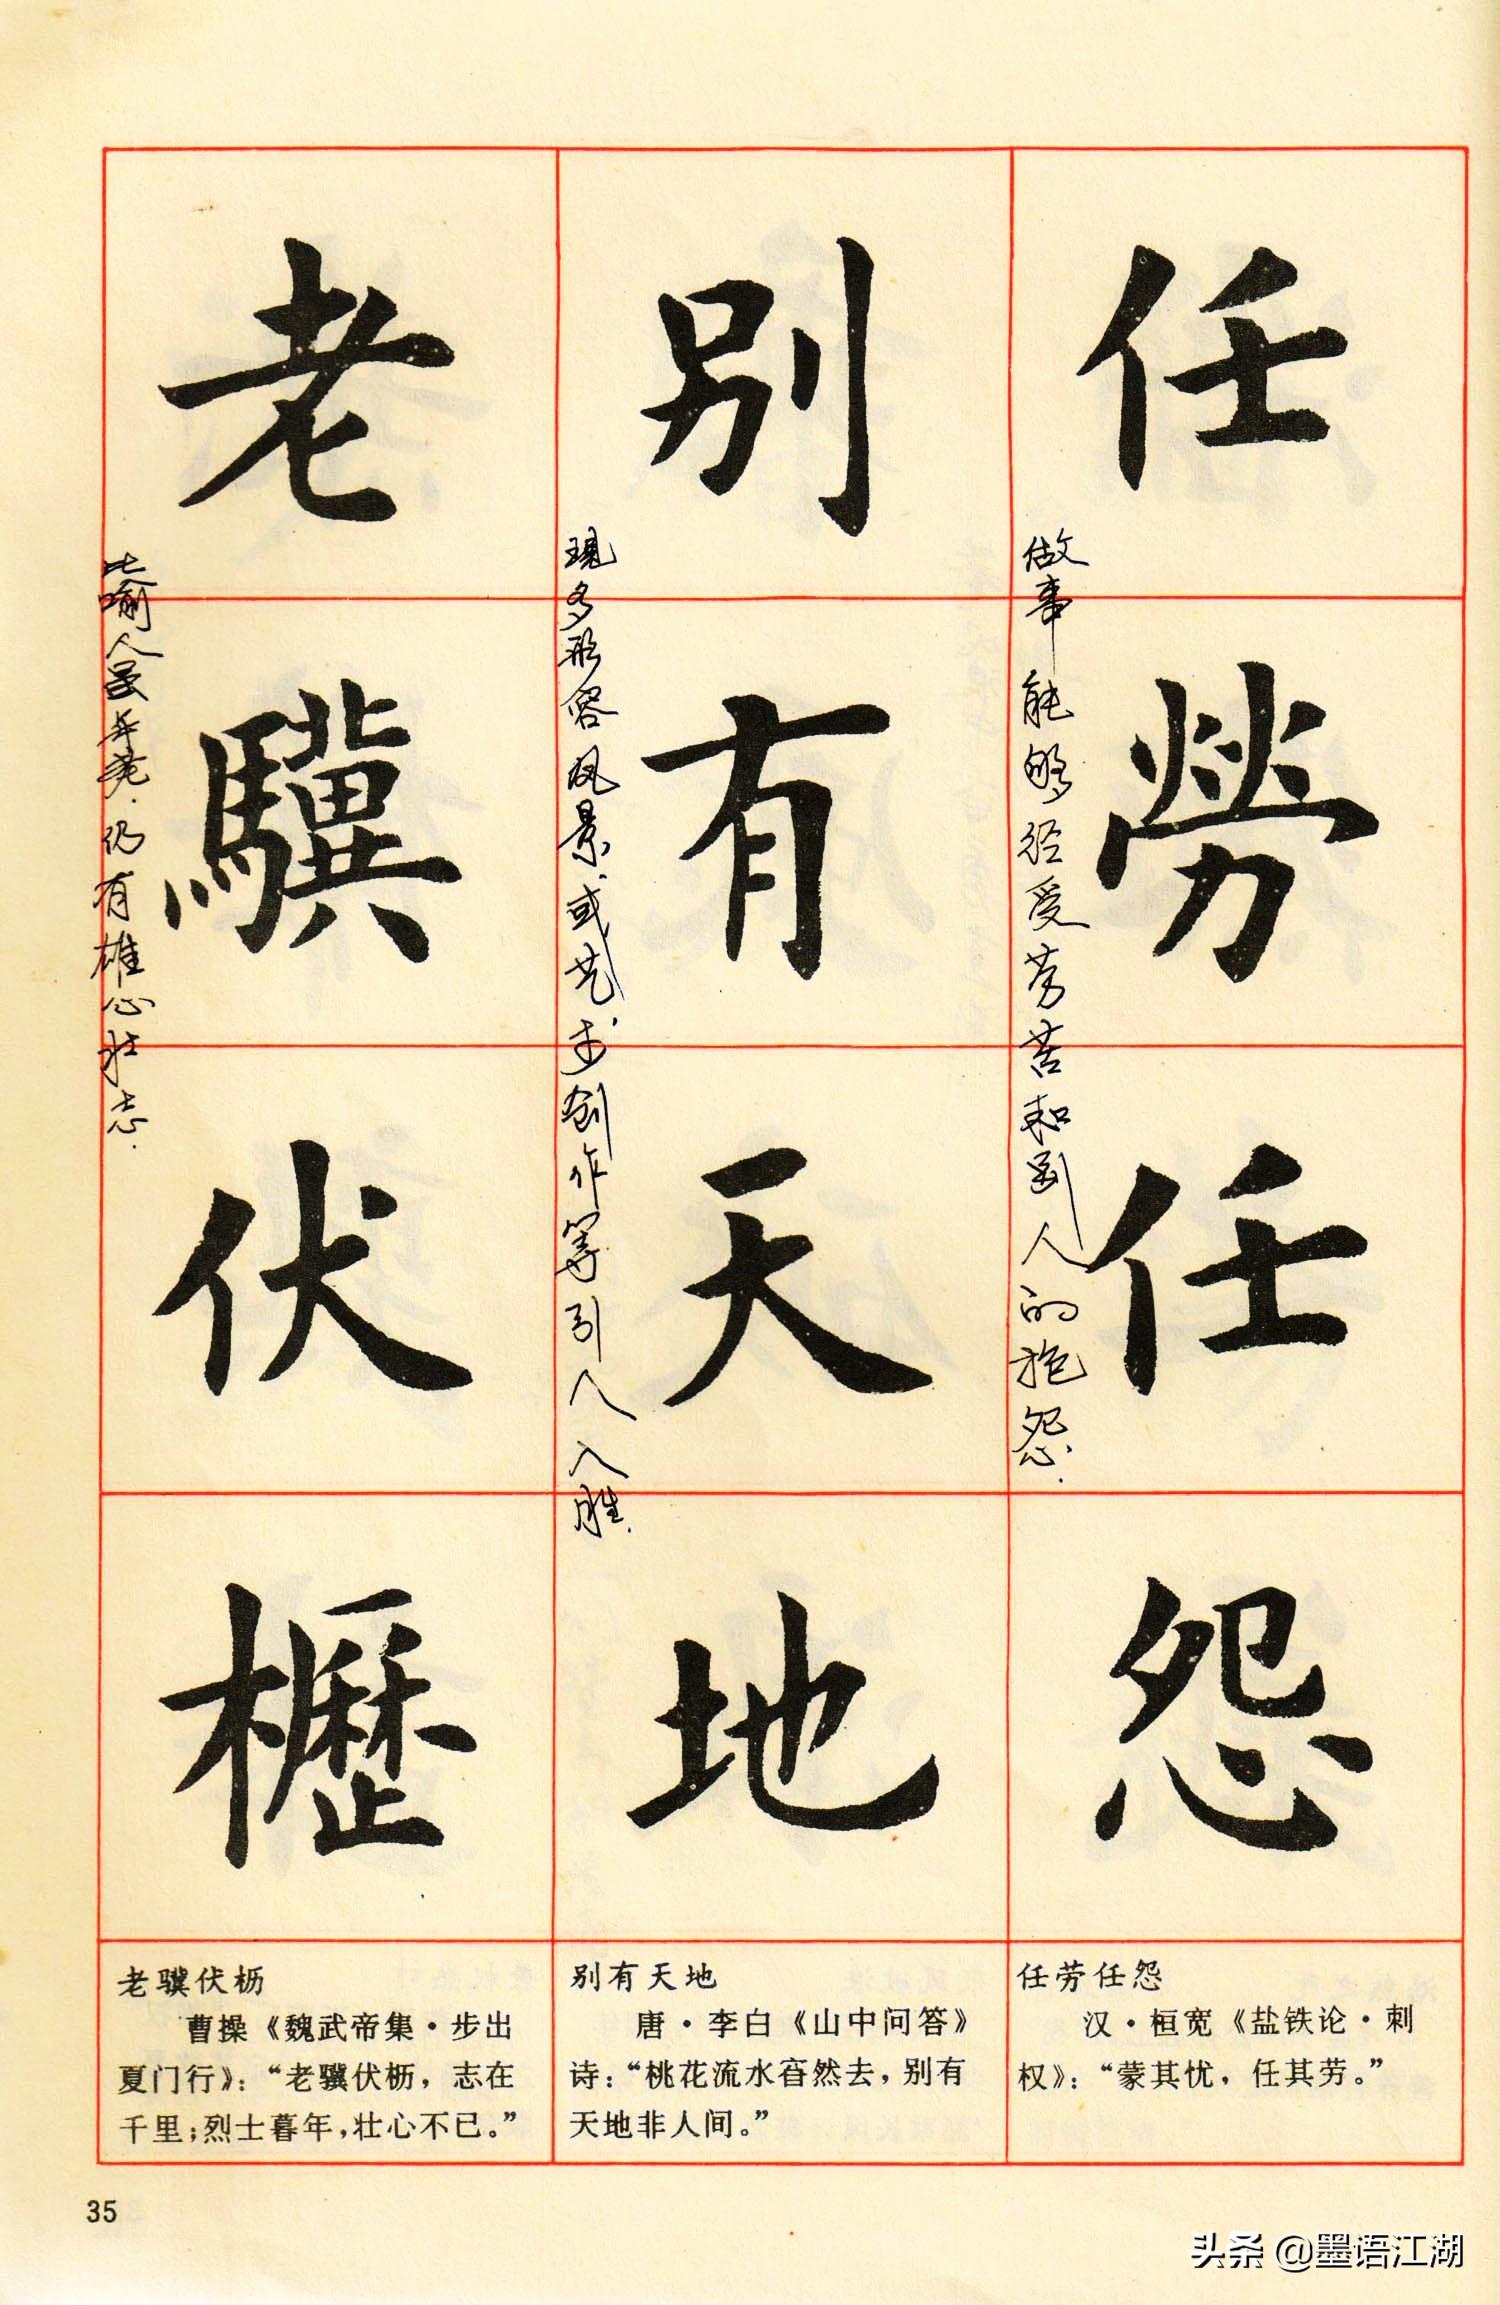 任勞任怨
做事能够经受劳苦和别人的抱怨.
任劳任怨
汉·桓宽《盐铁论·刺
权》：“蒙其忧，任其劳。”
别有天地
现多形容风景.或艺术创作等引人入胜.
别有天地
唐·李白《山中问答》
诗：“桃花流水窅然去，别有
天地非人间。”
老驥伏櫪
比喻人虽年老.仍有雄心壮志.
老骥伏枥
曹操《魏武帝集·步出
夏门行》：“老骥伏枥，志在
千里；烈士暮年，壮心不已。”
35
头条 @墨语江湖